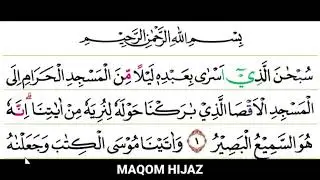 بِسْمِ اللهِ الرَّحْمٰنِ الرَّحِيْمِ
سُبْحٰنَ الَّذِيْٓ اَسْرٰى بِعَبْدِهٖ لَيْلًا مِّنَ الْمَسْجِدِ الْحَرَامِ اِلَى
الْمَسْجِدِ الْاَقْصَا الَّذِيْ بٰرَكْنَا حَوْلَهٗ لِنُرِيَهٗ مِنْ اٰيٰتِنَاۗ اِنَّهٗ
هُوَ السَّمِيْعُ الْبَصِيْرُ ١ وَاٰتَيْنَا مُوْسَى الْكِتٰبَ وَجَعَلْنٰهُ
MAQOM HIJAZ